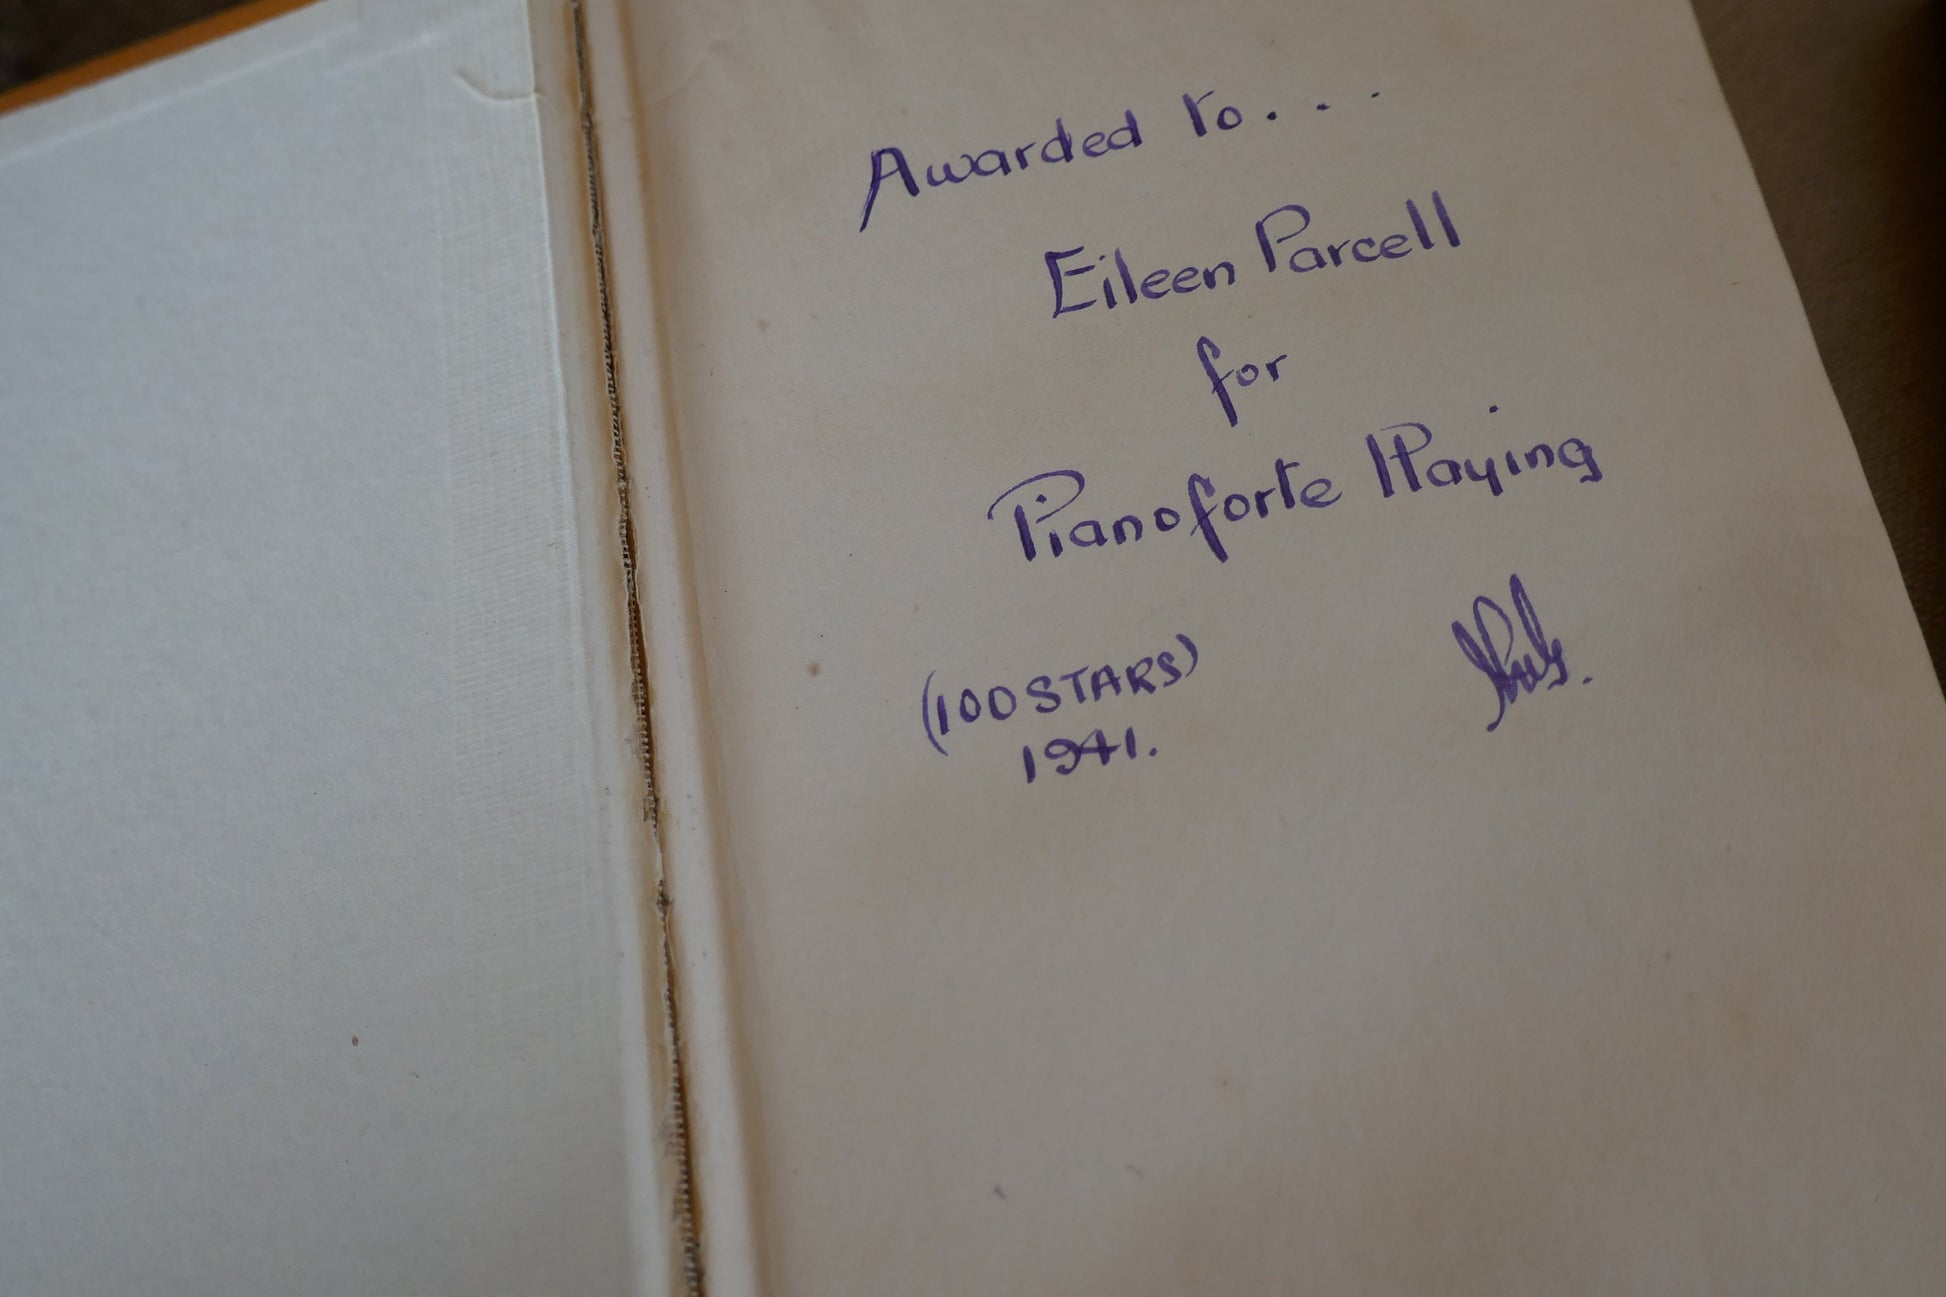 Awarded to...
Eileen Parcell
for
Pianoforte Playing
(100 STARS)
1941.